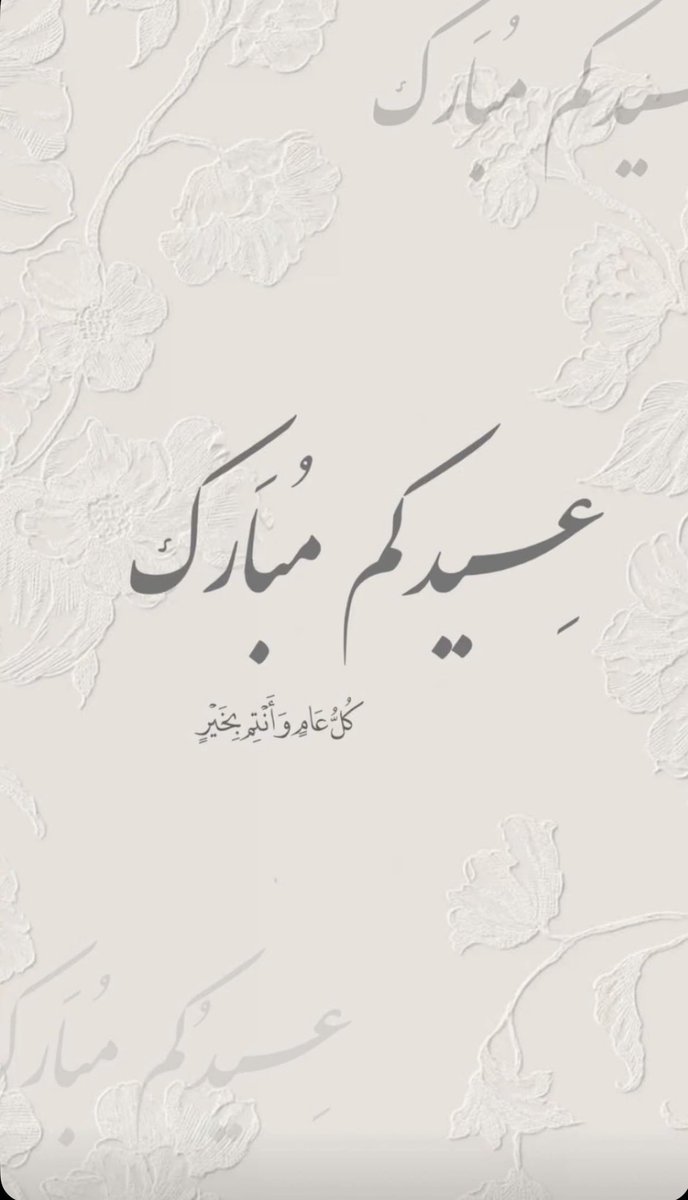 عيدكم مُبَارك
عِيدكم مُبَارك
كُلُّ عَامٍ وَأَنْتِم بِخَيْرٍ
عِيدكُم مُبَارك